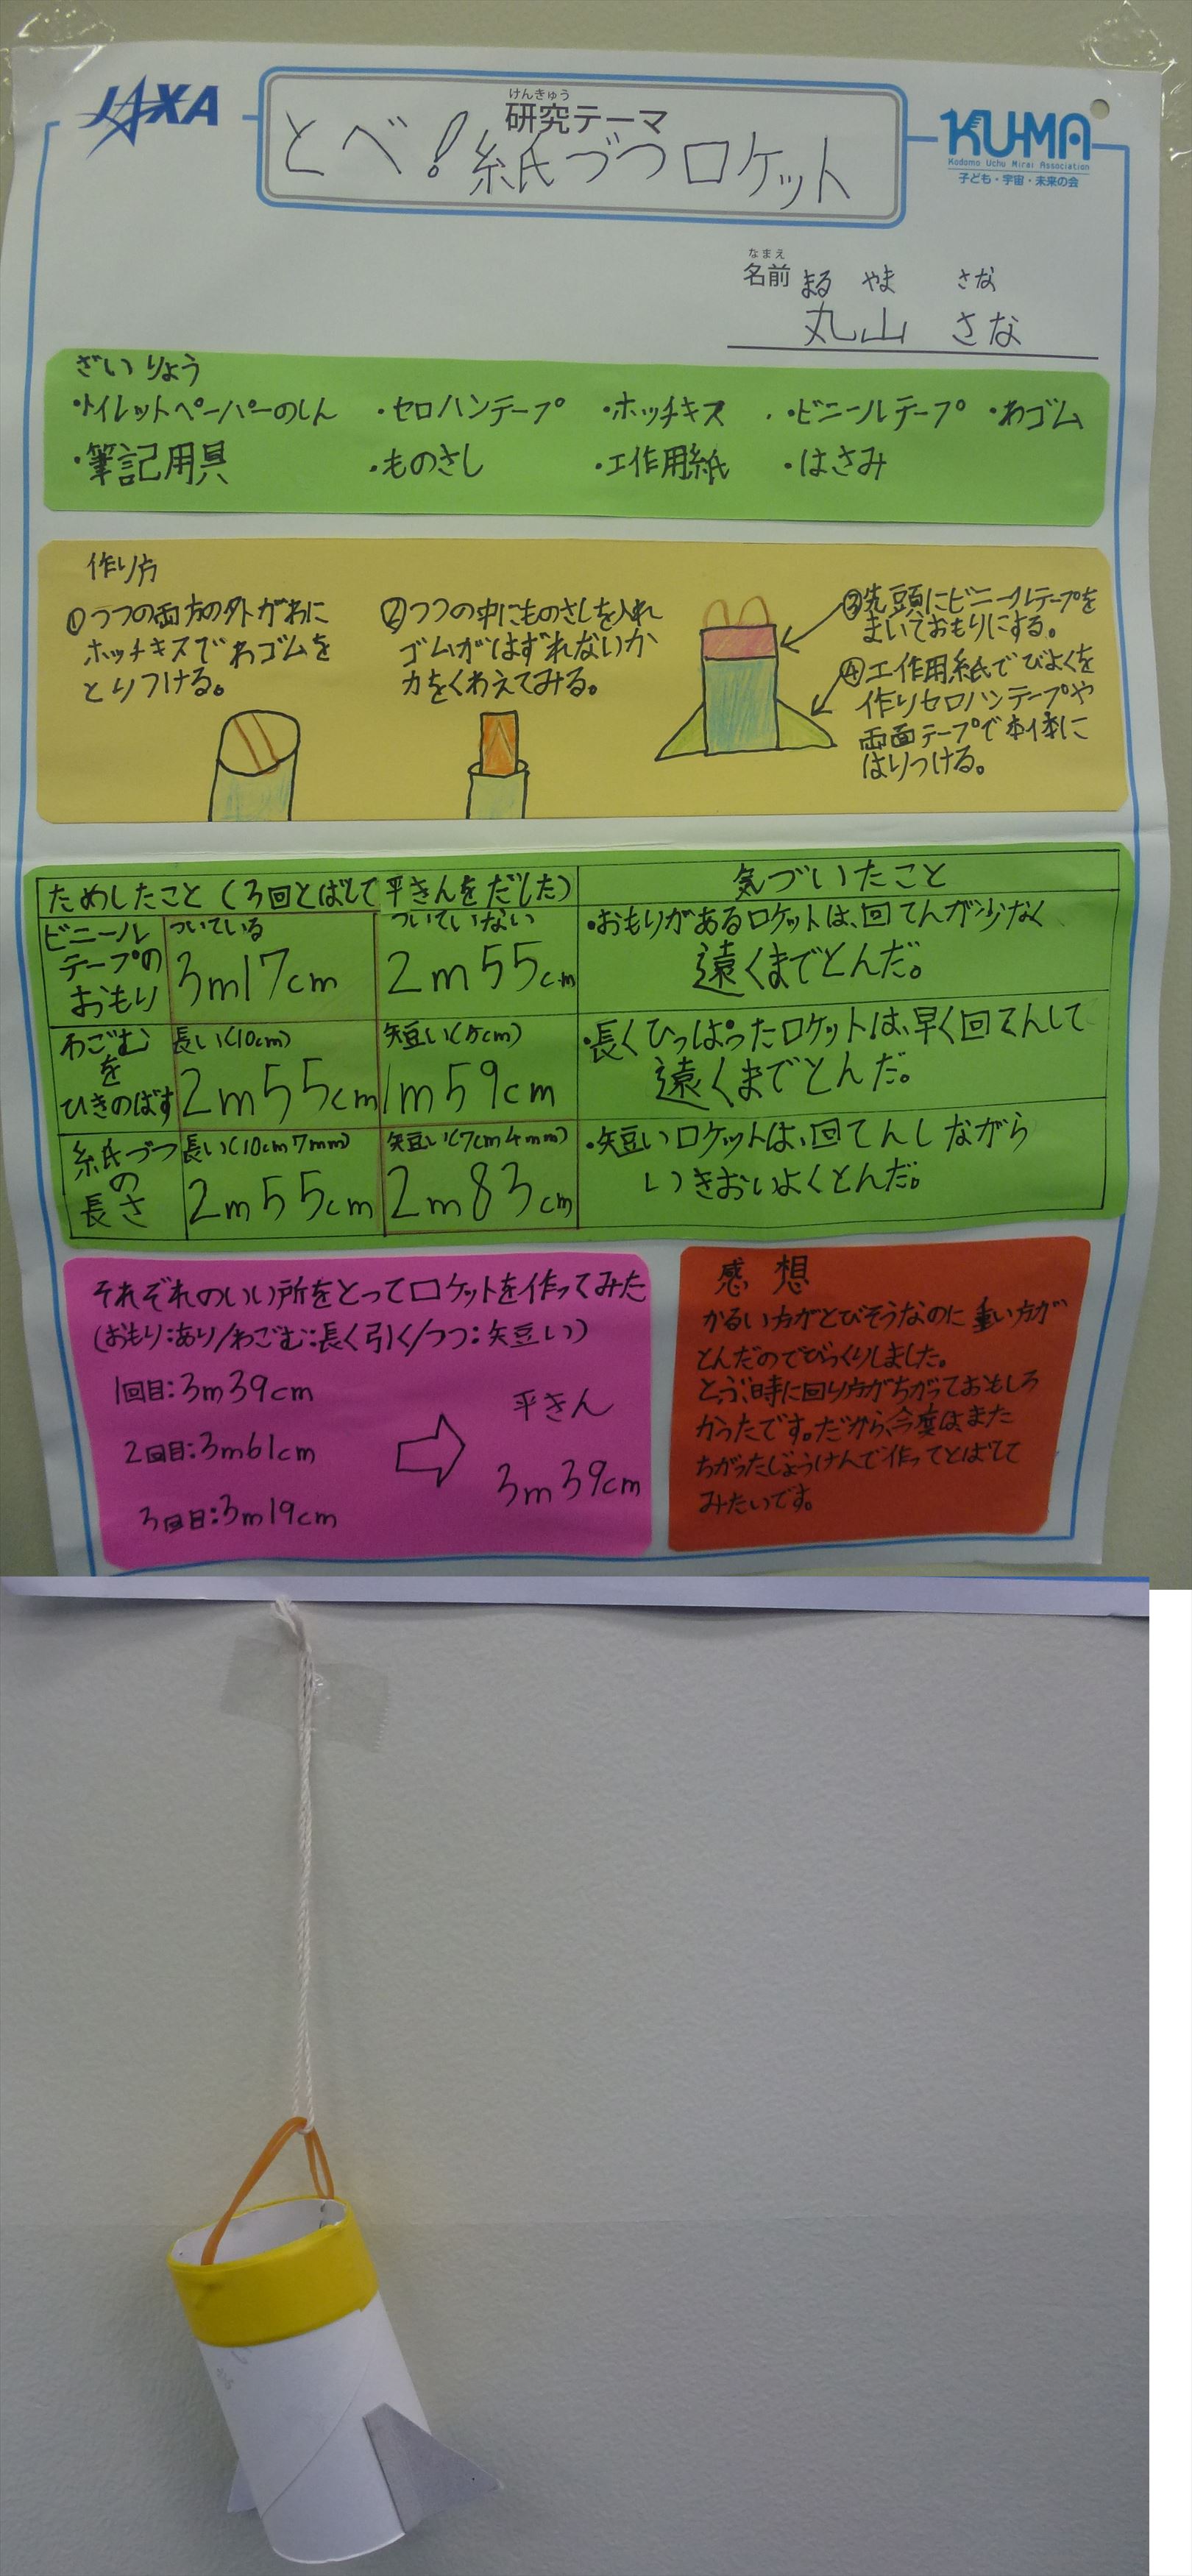 JAXA
けんきゅう
研究テーマ
とべ!紙づつロケット
KU-MA
Kodomo Uchu Mirai Association
子ども・宇宙・未来の会
なまえ
名前 まる やま さな
丸山 さな
ざいりょう
・トイレットペーパーのしん ・セロハンテープ ・ホッチキス ・ビニールテープ ・わゴム
・筆記用具 ・ものさし ・工作用紙 ・はさみ
作り方
①つつの両方の外がわに
ホッチキスでわゴムを
とりつける。
②つつの中にものさしを入れ
ゴムがはずれないか
力をくわえてみる。
③先頭にビニールテープを
まいておもりにする。
④工作用紙でびよくを
作りセロハンテープや
両面テープで本体に
はりつける。
ためしたこと(3回とばして平きんをだした)
気づいたこと
ビニール
テープの
おもり
ついている
3m17cm
ついていない
2m55cm
・おもりがあるロケットは、回てんが少なく
遠くまでとんだ。
わごむ
を
ひきのばす
長い(10cm)
2m55cm
短い(5cm)
1m59cm
・長くひっぱったロケットは、早く回てんして
遠くまでとんだ。
紙づつ
の
長さ
長い(10cm7mm)
2m55cm
短い(7cm4mm)
2m83cm
・短いロケットは、回てんしながら
いきおいよくとんだ。
それぞれのいい所をとってロケットを作ってみた
(おもり:あり/わごむ:長く引く/つつ:短い)
1回目:3m39cm
2回目:3m61cm
3回目:3m19cm
平きん
3m39cm
感想
かるい方がとびそうなのに重い方が
とんだのでびっくりしました。
とぶ時に回り方がちがっておもしろ
かったです。だから、今度は、また
ちがったじょうけんで作ってとばして
みたいです。